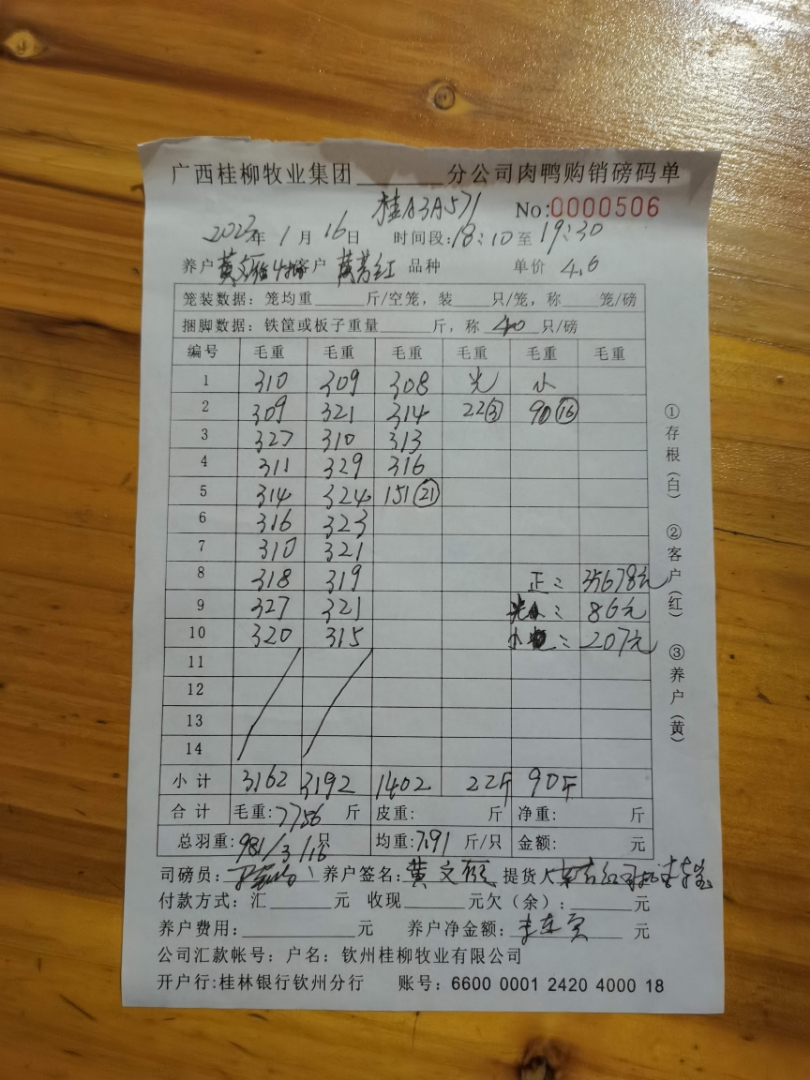 广西桂柳牧业集团______分公司肉鸭购销磅码单
桂A3A571 No:0000506
2023年1月16日 时间段:18:10至19:30
养户 黄文 客户 黄芳红 品种 单价 4.6
笼装数据：笼均重______斤/空笼，装______只/笼，称______笼/磅
捆脚数据：铁筐或板子重量______斤，称 40 只/磅
编号 毛重 毛重 毛重 毛重 毛重 毛重
1 310 309 308 光 小
2 309 321 314 22③ 90⑯
3 327 310 313
4 311 329 316
5 314 324 151㉑
6 316 323
7 310 321
8 318 319 正: 35678元
9 327 321 光: 86元
10 320 315 小: 207元
11
12
13
14
小计 3162 3192 1402 22斤 90斤
合计 毛重:7756 斤 皮重: 斤 净重: 斤
总羽重:981/3/16 只 均重:7.91 斤/只 金额: 元
司磅员: 养户签名:黄文 提货人
付款方式：汇______元 收现______元欠（余）:______元
养户费用:______元 养户净金额: 元
公司汇款帐号：户名：钦州桂柳牧业有限公司
开户行:桂林银行钦州分行 账号：6600 0001 2420 4000 18
①存根（白） ②客户（红） ③养户（黄）